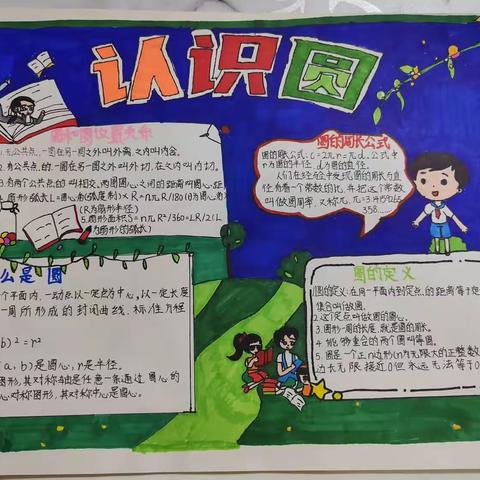 认识圆
圆和圆位置关系
1.无公共点,一圆在另一圆之外叫外离,之内叫内含。
2.有公共点的,一圆在另一圆之外叫外切,在之内叫内切。
3.有两个公共点的叫相交,两圆圆心之间的距离叫圆心距
(R为扇形半径)
5.扇形面积S=nπR²/360=LR/2(L
为扇形的弧长)
圆的周长公式
圆的周长公式:C=2πr=πd,公式中
r为圆的半径,d为圆的直径。
人们在经验中发现圆的周长与直
径有着一个常数的比,并把这个常数
叫做圆周率,又称π,π=3.1415926535
么是圆
个平面内,一动点以一定点为中心,以一定长度
一周所形成的封闭曲线,标准方程
b)²=r²
(a,b)是圆心,r是半径。
图形,其对称轴是任意一条通过圆心的
心对称图形,其对称中心是圆心。
圆的定义
圆的定义:在同一平面内到定点的距离等于定
集合叫做圆。
2.这个定点叫做圆的圆心。
3.图形一周的长度,就是圆的周长。
4.能够重合的两个圆叫等圆。
5.圆是一个正n边形(n为无限大的正整数
边长无限接近0但永远无法等于0